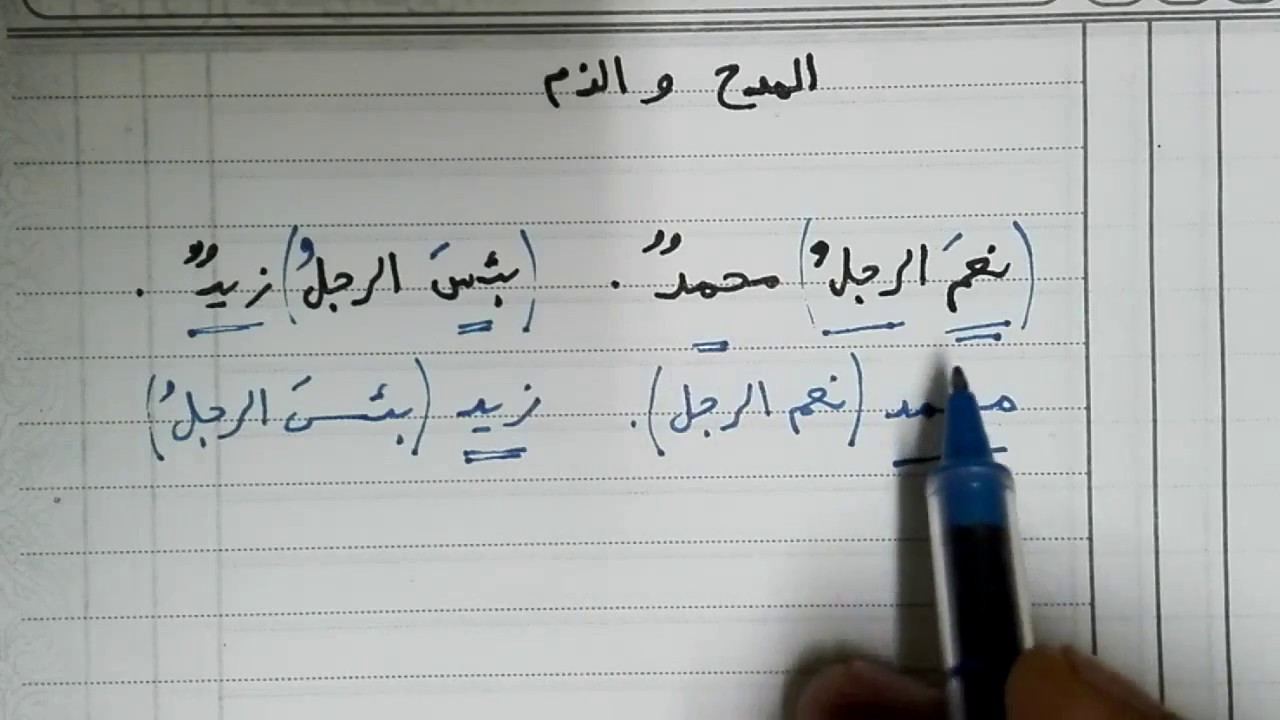 المدح و الذم
(نعمَ الرجلُ) محمدٌ . (بئسَ الرجلُ) زيدٌ .
محمد (نعم الرجل). زيد (بئسَ الرجلُ)